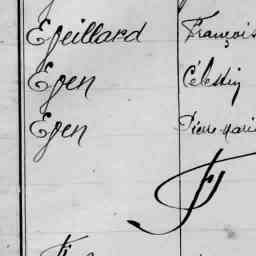 Epeillard François
Epen Célestin
Epen Pierre Marie
F